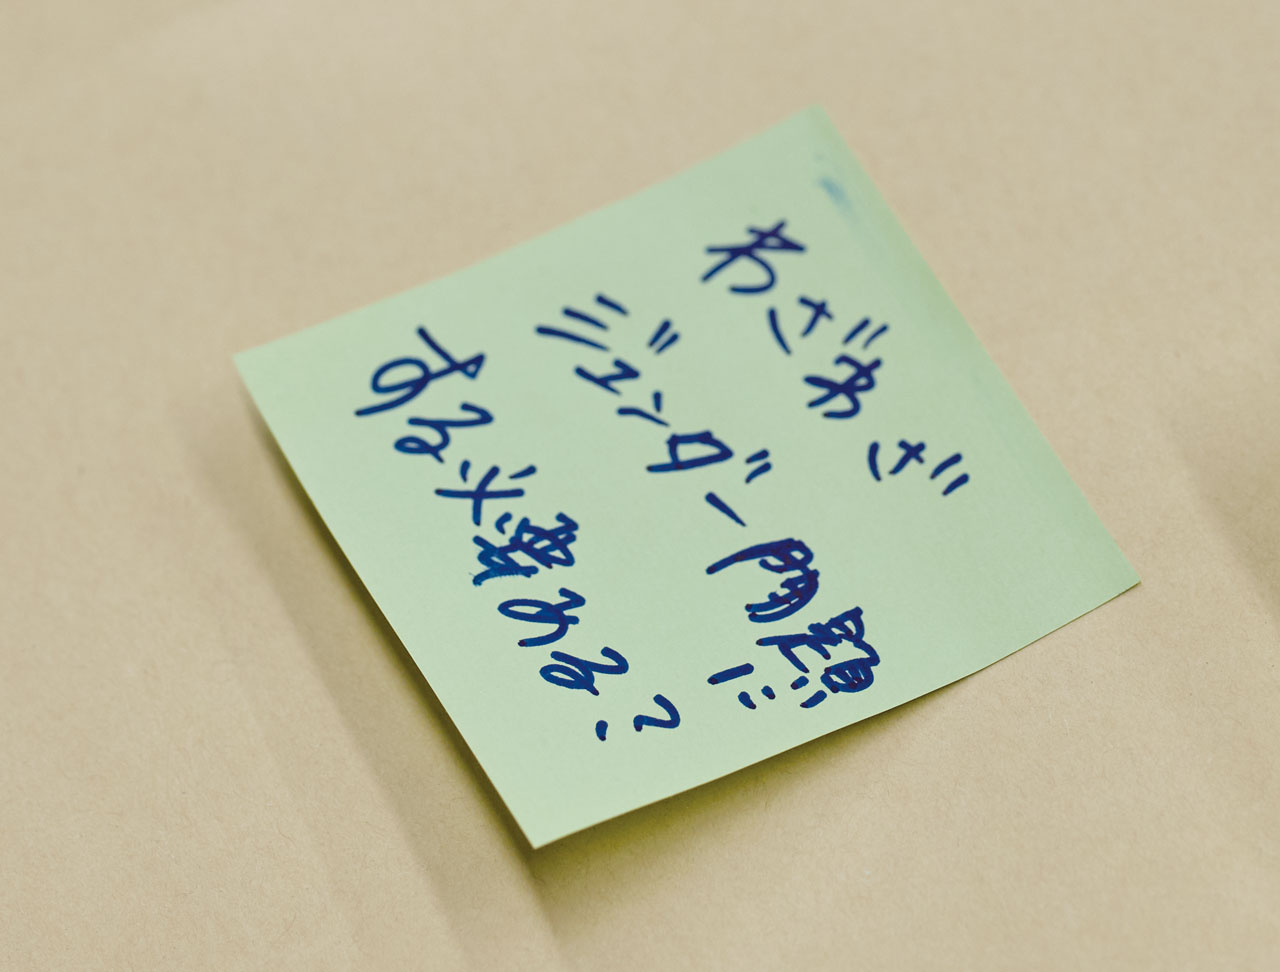 わざわざ
ジェンダー問題に
する必要ある?